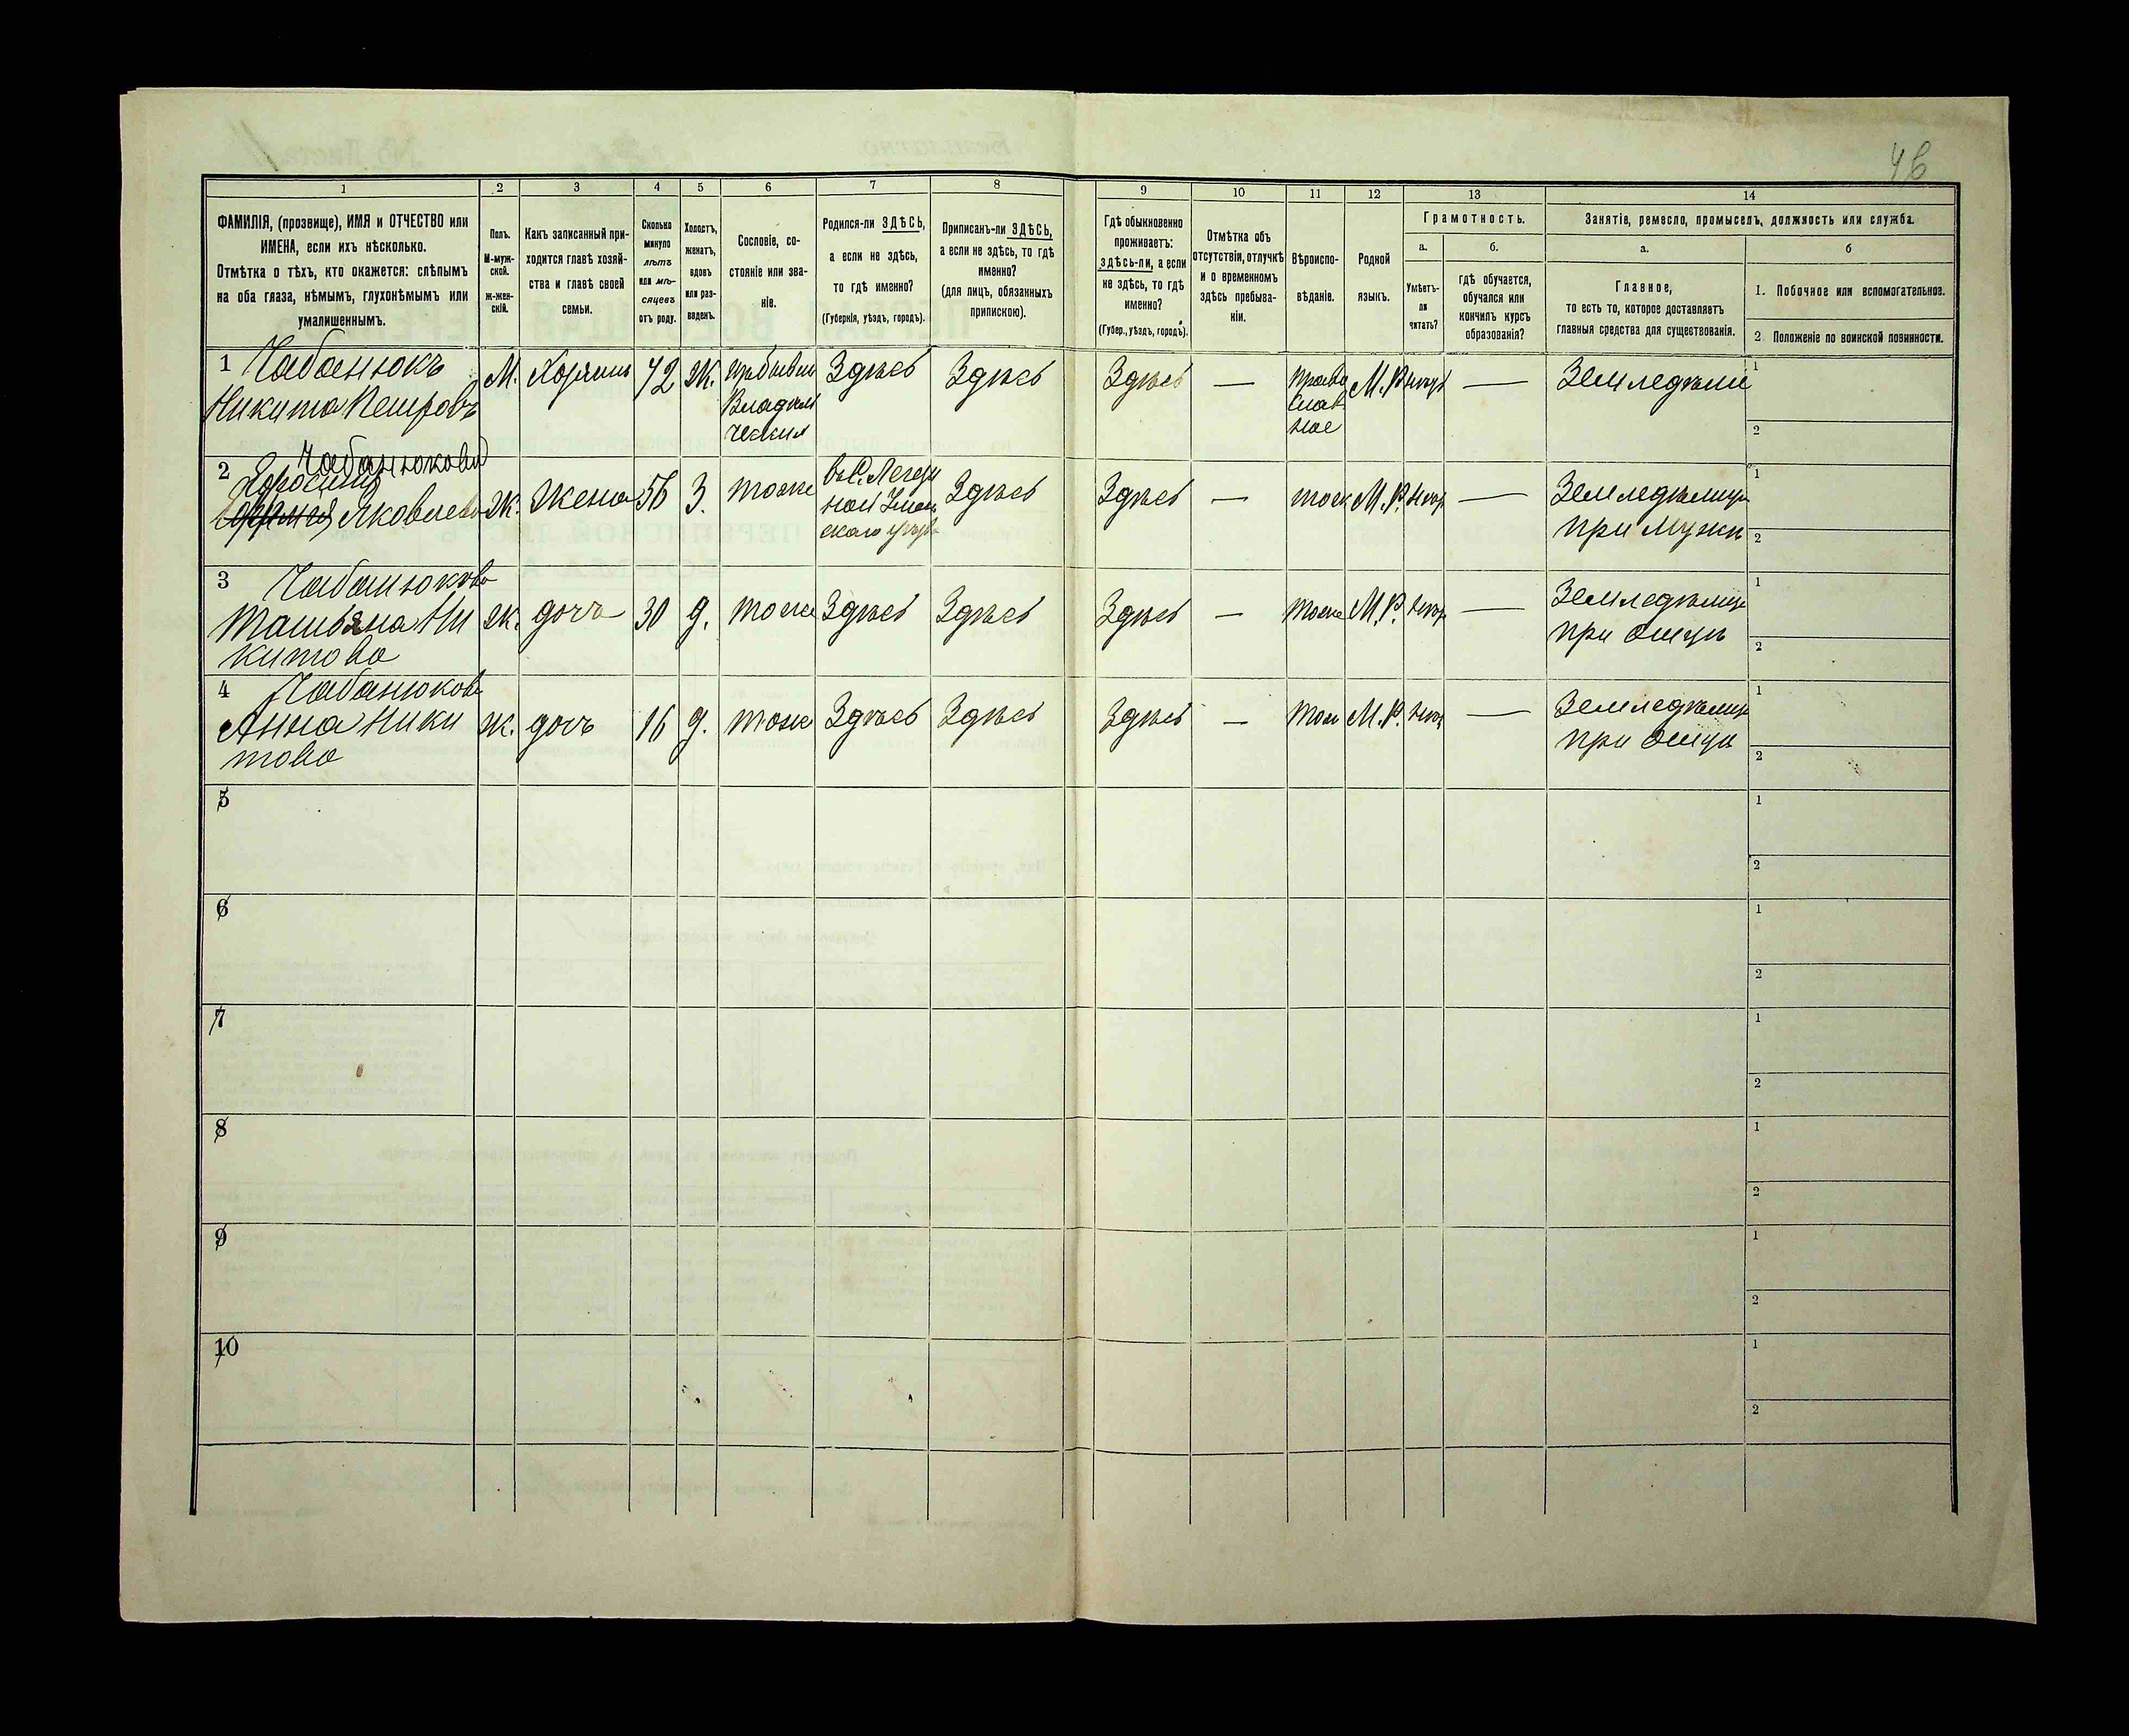 46
1 2 3 4 5 6 7 8 9 10 11 12 13 14
ФАМИЛІЯ, (прозвище), ИМЯ и ОТЧЕСТВО или
ИМЕНА, если ихъ нѣсколько.
Отмѣтка о тѣхъ, кто окажется: слѣпымъ
на оба глаза, нѣмымъ, глухонѣмымъ или
умалишеннымъ.
Полъ.
М-муж-
ской.
Ж-жен-
скій.
Какъ записанный при-
ходится главѣ хозяй-
ства и главѣ своей
семьи.
Сколько
минуло
лѣтъ
или мѣ-
сяцевъ
отъ роду.
Холостъ,
женатъ,
вдовъ
или раз-
веденъ.
Сословіе, со-
стояніе или зва-
ніе.
Родился-ли ЗДѢСЬ,
а если не здѣсь,
то гдѣ именно?
(Губернія, уѣздъ, городъ).
Приписанъ-ли ЗДѢСЬ,
а если не здѣсь, то гдѣ
именно?
(для лицъ, обязанныхъ
припискою).
Гдѣ обыкновенно
проживаетъ:
здѣсь-ли, а если
не здѣсь, то гдѣ
именно?
(Губер., уѣздъ, городъ).
Отмѣтка объ
отсутствіи, отлучкѣ
и о временномъ
здѣсь пребыва-
ніи.
Вѣроиспо-
вѣданіе.
Родной
языкъ.
Грамотность.
а.
Умѣетъ-
ли
читать?
б.
Гдѣ обучается,
обучался или
кончилъ курсъ
образованія?
Занятіе, ремесло, промыселъ, должность или служба.
а.
Главное,
то есть то, которое доставляетъ
главныя средства для существованія.
б
1. Побочное или вспомогательное.
2. Положеніе по воинской повинности.
1 Чабанюкъ
Никита Петровъ
М. Хозяинъ 72 Ж.
Владѣль
ческія
Здѣсь Здѣсь Здѣсь —
Право
слав
ное
М.Р. нѣтъ — Земледѣлие
1
2
2 Чабанюкова
Яковлева
Ж. Жена 56 З. тоже
Здѣсь Здѣсь — тоже М.Р. нѣтъ —
Земледѣлица
при мужѣ
1
2
3 Чабанюкова
Татьяна Ни
китова
Ж. дочь 30 д. тоже Здѣсь Здѣсь Здѣсь — тоже М.Р. нѣтъ —
Земледѣлица
при отцѣ
1
2
4 Чабанюкова
Анна Ники
това
Ж. дочь 16 д. тоже Здѣсь Здѣсь Здѣсь — тоже М.Р. нѣтъ —
Земледѣлица
при отцѣ
1
2
5
1
2
6
1
2
7
1
2
8
1
2
9
1
2
10
1
2